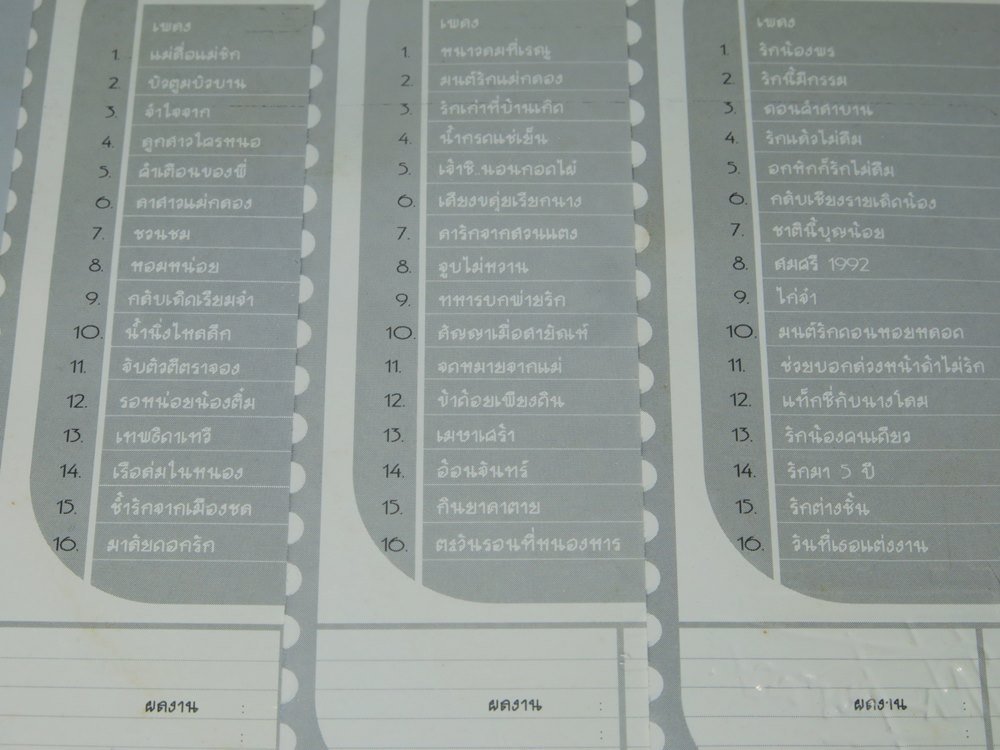 เพลง
1. แม่สื่อแม่ชัก
2. บัวตูมบัวบาน
3. จำใจจาก
4. ลูกสาวใครหนอ
5. ลำเตือนของพี่
6. ลาสาวแม่กลอง
7. ชวนชม
8. หอมหน่อย
9. กลับเถิดเรียมจ๋า
10. น้ำนิ่งไหลลึก
11. จับติวตีตราจอง
12. รอหน่อยน้องติ๋ม
13. เทพธิดาเทวี
14. เรือล่มในหนอง
15. ช้ำรักจากเมืองชล
16. มาลัยดอกรัก
ผลงาน :
เพลง
1. หนาวลมที่เรณู
2. มนต์รักแม่กลอง
3. รักเก่าที่บ้านเกิด
4. น้ำกรดแช่เย็น
5. เจ้าชิ..นอนกอดไผ่
6. เสียงขลุ่ยเรียกนาง
7. ลารักจากสวนแตง
8. จูบไม่หวาน
9. ทหารบกพ่ายรัก
10. สัญญาเมื่อสายัณห์
11. จดหมายจากแม่
12. ข้าด้อยเพียงดิน
13. เมษาเศร้า
14. อ้อนจันทร์
15. กินยาลาตาย
16. ตะวันรอนที่หนองหาร
ผลงาน :
เพลง
1. รักน้องพร
2. รักนี้มีกรรม
3. ดอนลำลาบาน
4. รักแล้วไม่ลืม
5. อกหักก็รักไม่ลืม
6. กลับเชียงรายเถิดน้อง
7. ชาตินี้บุญน้อย
8. สมศรี 1992
9. ไก่จ๋า
10. มนต์รักดอนหอยหลอด
11. ช่วยบอกล่วงหน้าถ้าไม่รัก
12. แท็กซี่กับนางโลม
13. รักน้องคนเดียว
14. รักมา 5 ปี
15. รักต่างชั้น
16. วันที่เธอแต่งงาน
ผลงาน :